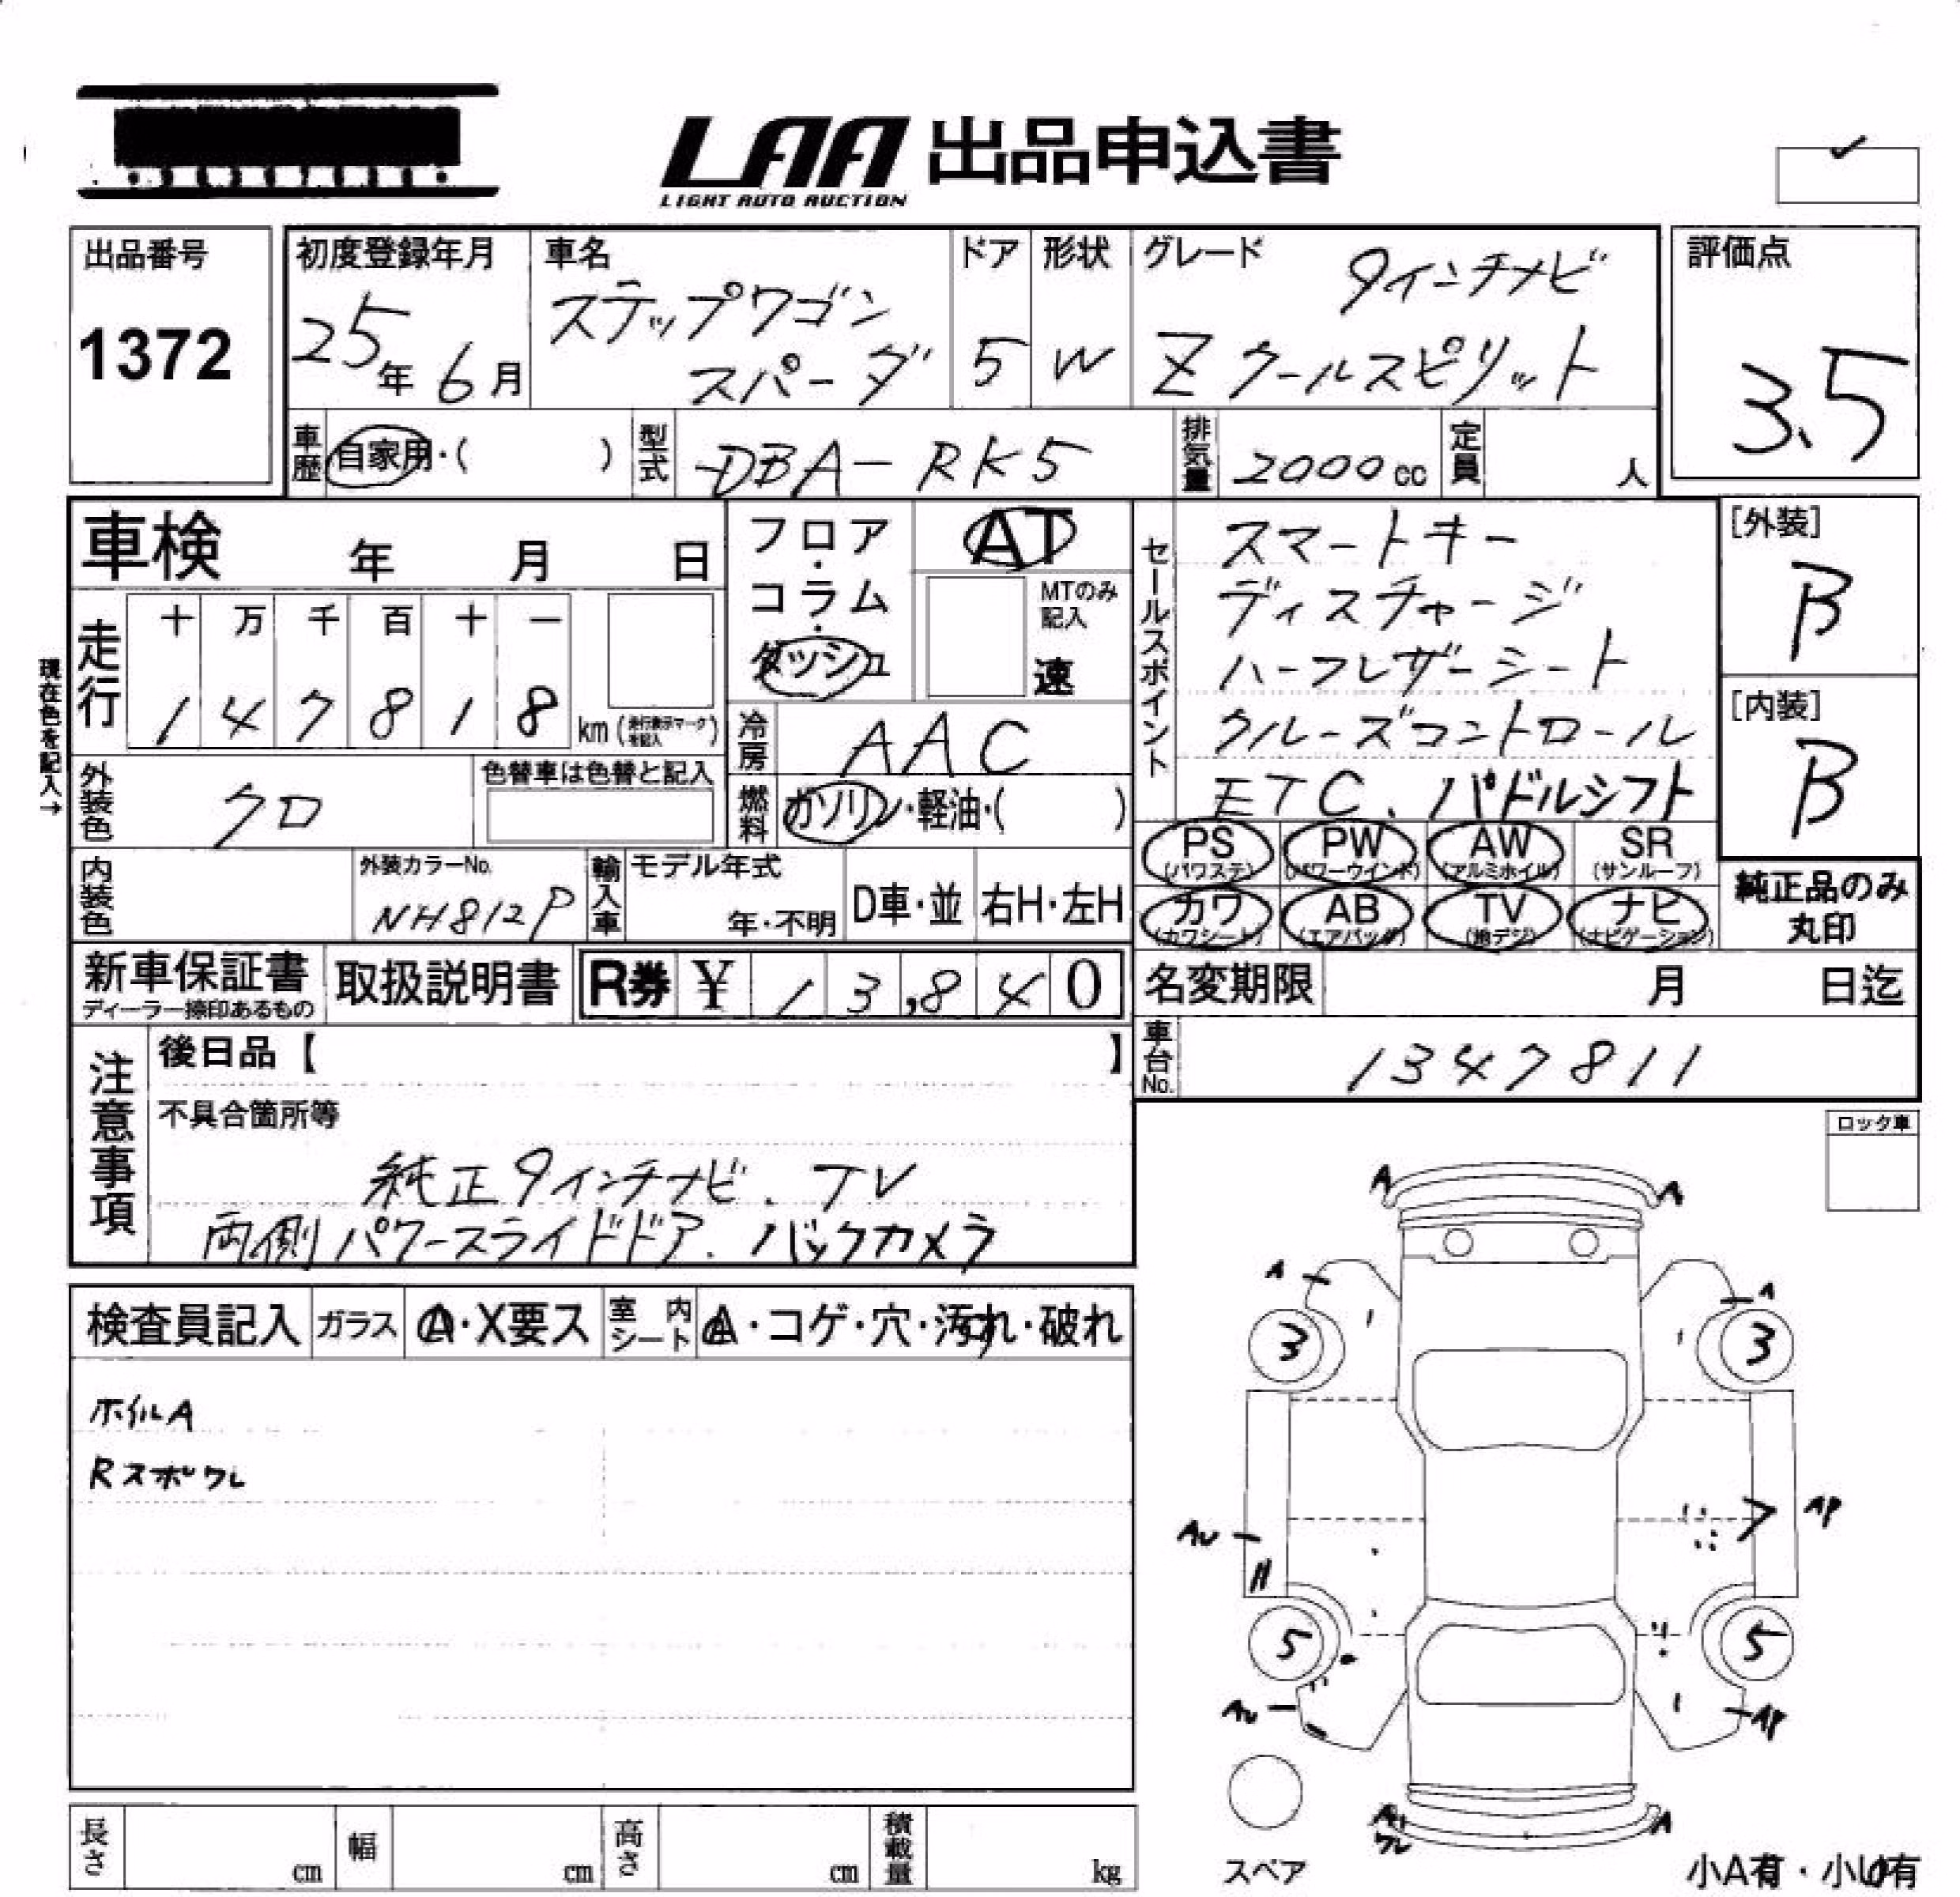 LAA 出品申込書
LIGHT AUTO AUCTION
出品番号
1372
初度登録年月
25年 6月
車名
ステップワゴン
スパーダ
ドア
5
形状
W
グレード
9インチナビ
Z クールスピリット
評価点
3.5
車歴 自家用・( )
型式 DBA-RK5
排気量 2000cc
定員 人
車検 年 月 日
フロア・コラム・ダッシュ
AT
MTのみ記入
速
セールスポイント
スマートキー
ディスチャージ
ハーフレザーシート
クルーズコントロール
ETC、パドルシフト
[外装]
B
[内装]
B
現在色を記入→
走行 十 万 千 百 十 一
1 4 7 8 1 8 km (走行表示マークを記入)
冷房 AAC
外装色 クロ
色替車は色替と記入
燃料 ガソリン・軽油・( )
PS (パワステ) PW (パワーウインド) AW (アルミホイル) SR (サンルーフ)
カワ (カワシート) AB (エアバッグ) TV (地デジ) ナビ (ナビゲーション)
純正品のみ
丸印
内装色
外装カラーNo.
NH812P
輸入車 モデル年式
年・不明
D車・並 右H・左H
新車保証書
ディーラー捺印あるもの
取扱説明書
R券 ¥ 13,840
名変期限 月 日迄
車台No. 1347811
注意事項
後日品【 】
不具合箇所等
純正9インチナビ、TV
両側パワースライドドア、バックカメラ
ロック車
検査員記入 ガラス A・X要ス 室内シート A・コゲ・穴・汚れ・破れ
ホイルA
Rスポワレ
A A
A A
3 3
AU AP
5 5
AU AP
ワレ A
スペア
小A有・小U有
長さ cm 幅 cm 高さ cm 積載量 kg